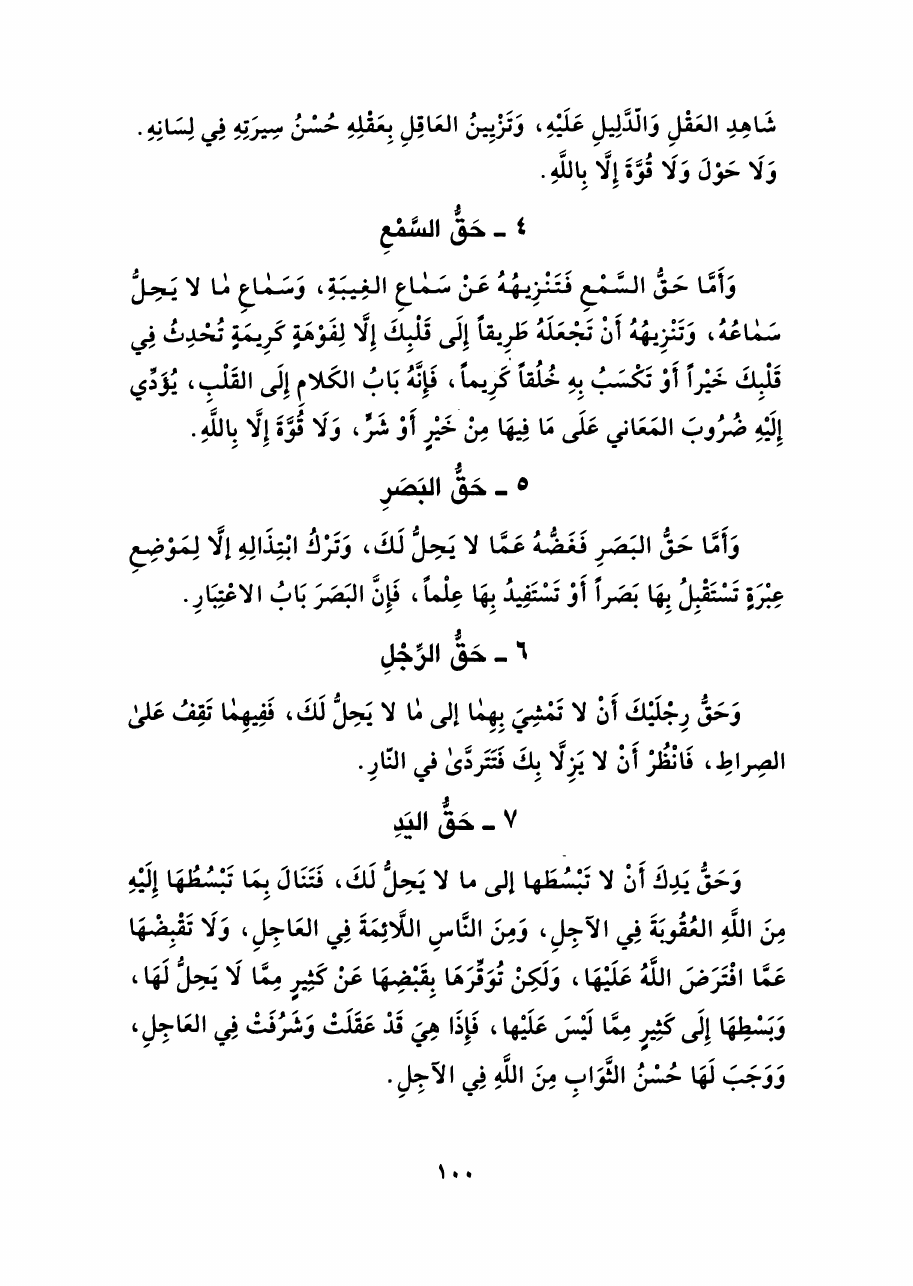 شَاهِدِ العَقْلِ وَالدَّلِيلِ عَلَيْهِ، وَتَزْيِينُ العَاقِلِ بِعَقْلِهِ حُسْنُ سِيرَتِهِ فِي لِسَانِهِ.
وَلَا حَوْلَ وَلَا قُوَّةَ إِلَّا بِاللَّهِ.
٤ ـ حَقُّ السَّمْعِ
وَأَمَّا حَقُّ السَّمْعِ فَتَنْزِيهُهُ عَنْ سَمٰاعِ الغِيبَةِ، وَسَمٰاعِ مٰا لا يَحِلُّ
سَمٰاعُهُ، وَتَنْزِيهُهُ أَنْ تَجْعَلَهُ طَرِيقاً إِلَى قَلْبِكَ إِلَّا لِفَوْهَةٍ كَرِيمَةٍ تُحْدِثُ فِي
قَلْبِكَ خَيْراً أَوْ تَكْسَبُ بِهِ خُلُقاً كَرِيماً، فَإِنَّهُ بَابُ الكَلامِ إِلَى القَلْبِ، يُؤَدِّي
إِلَيْهِ ضُرُوبَ المَعَاني عَلَى مَا فِيهَا مِنْ خَيْرٍ أَوْ شَرٍّ، وَلَا قُوَّةَ إِلَّا بِاللَّهِ.
٥ ـ حَقُّ البَصَرِ
وَأَمَّا حَقُّ البَصَرِ فَغَضُّهُ عَمَّا لا يَحِلُّ لَكَ، وَتَرْكُ ابْتِذَالِهِ إلَّا لِمَوْضِعِ
عِبْرَةٍ تَسْتَقْبِلُ بِهَا بَصَراً أَوْ تَسْتَفِيدُ بِهَا عِلْماً، فَإِنَّ البَصَرَ بَابُ الاعْتِبَارِ.
٦ ـ حَقُّ الرِّجْلِ
وَحَقُّ رِجْلَيْكَ أَنْ لا تَمْشِيَ بِهِمٰا إلى مٰا لا يَحِلُّ لَكَ، فَفِيهِمٰا تَقِفُ عَلىٰ
الصِراطِ، فَانْظُرْ أَنْ لا يَزِلَّا بِكَ فَتَتَردَّىٰ في النّارِ.
٧ ـ حَقُّ اليَدِ
وَحَقُّ يَدِكَ أَنْ لا تَبْسُطَها إلى ما لا يَحِلُّ لَكَ، فَتَنَالَ بِمَا تَبْسُطُهَا إِلَيْهِ
مِنَ اللَّهِ العُقُوبَةَ فِي الآجِلِ، وَمِنَ النَّاسِ اللَّائِمَةَ فِي العَاجِلِ، وَلَا تَقْبِضْهَا
عَمَّا افْتَرَضَ اللَّهُ عَلَيْهَا، وَلَكِنْ تُوَقِّرَهَا بِقَبْضِهَا عَنْ كَثِيرٍ مِمَّا لَا يَحِلُّ لَهَا،
وَبَسْطِهَا إِلَى كَثِيرٍ مِمَّا لَيْسَ عَلَيْها، فَإِذَا هِيَ قَدْ عَقَلَتْ وَشَرُفَتْ فِي العَاجِلِ،
وَوَجَبَ لَهَا حُسْنُ الثَّوَابِ مِنَ اللَّهِ فِي الآجِلِ.
١٠٠